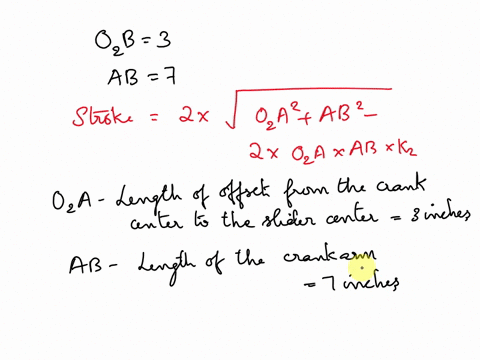 O₂B = 3
AB = 7
Stroke = 2 × √ O₂A² + AB² −
2 × O₂A × AB × K₂
O₂A - Length of offset from the crank
center to the slider center = 3 inches
AB - Length of the crank arm
= 7 inches